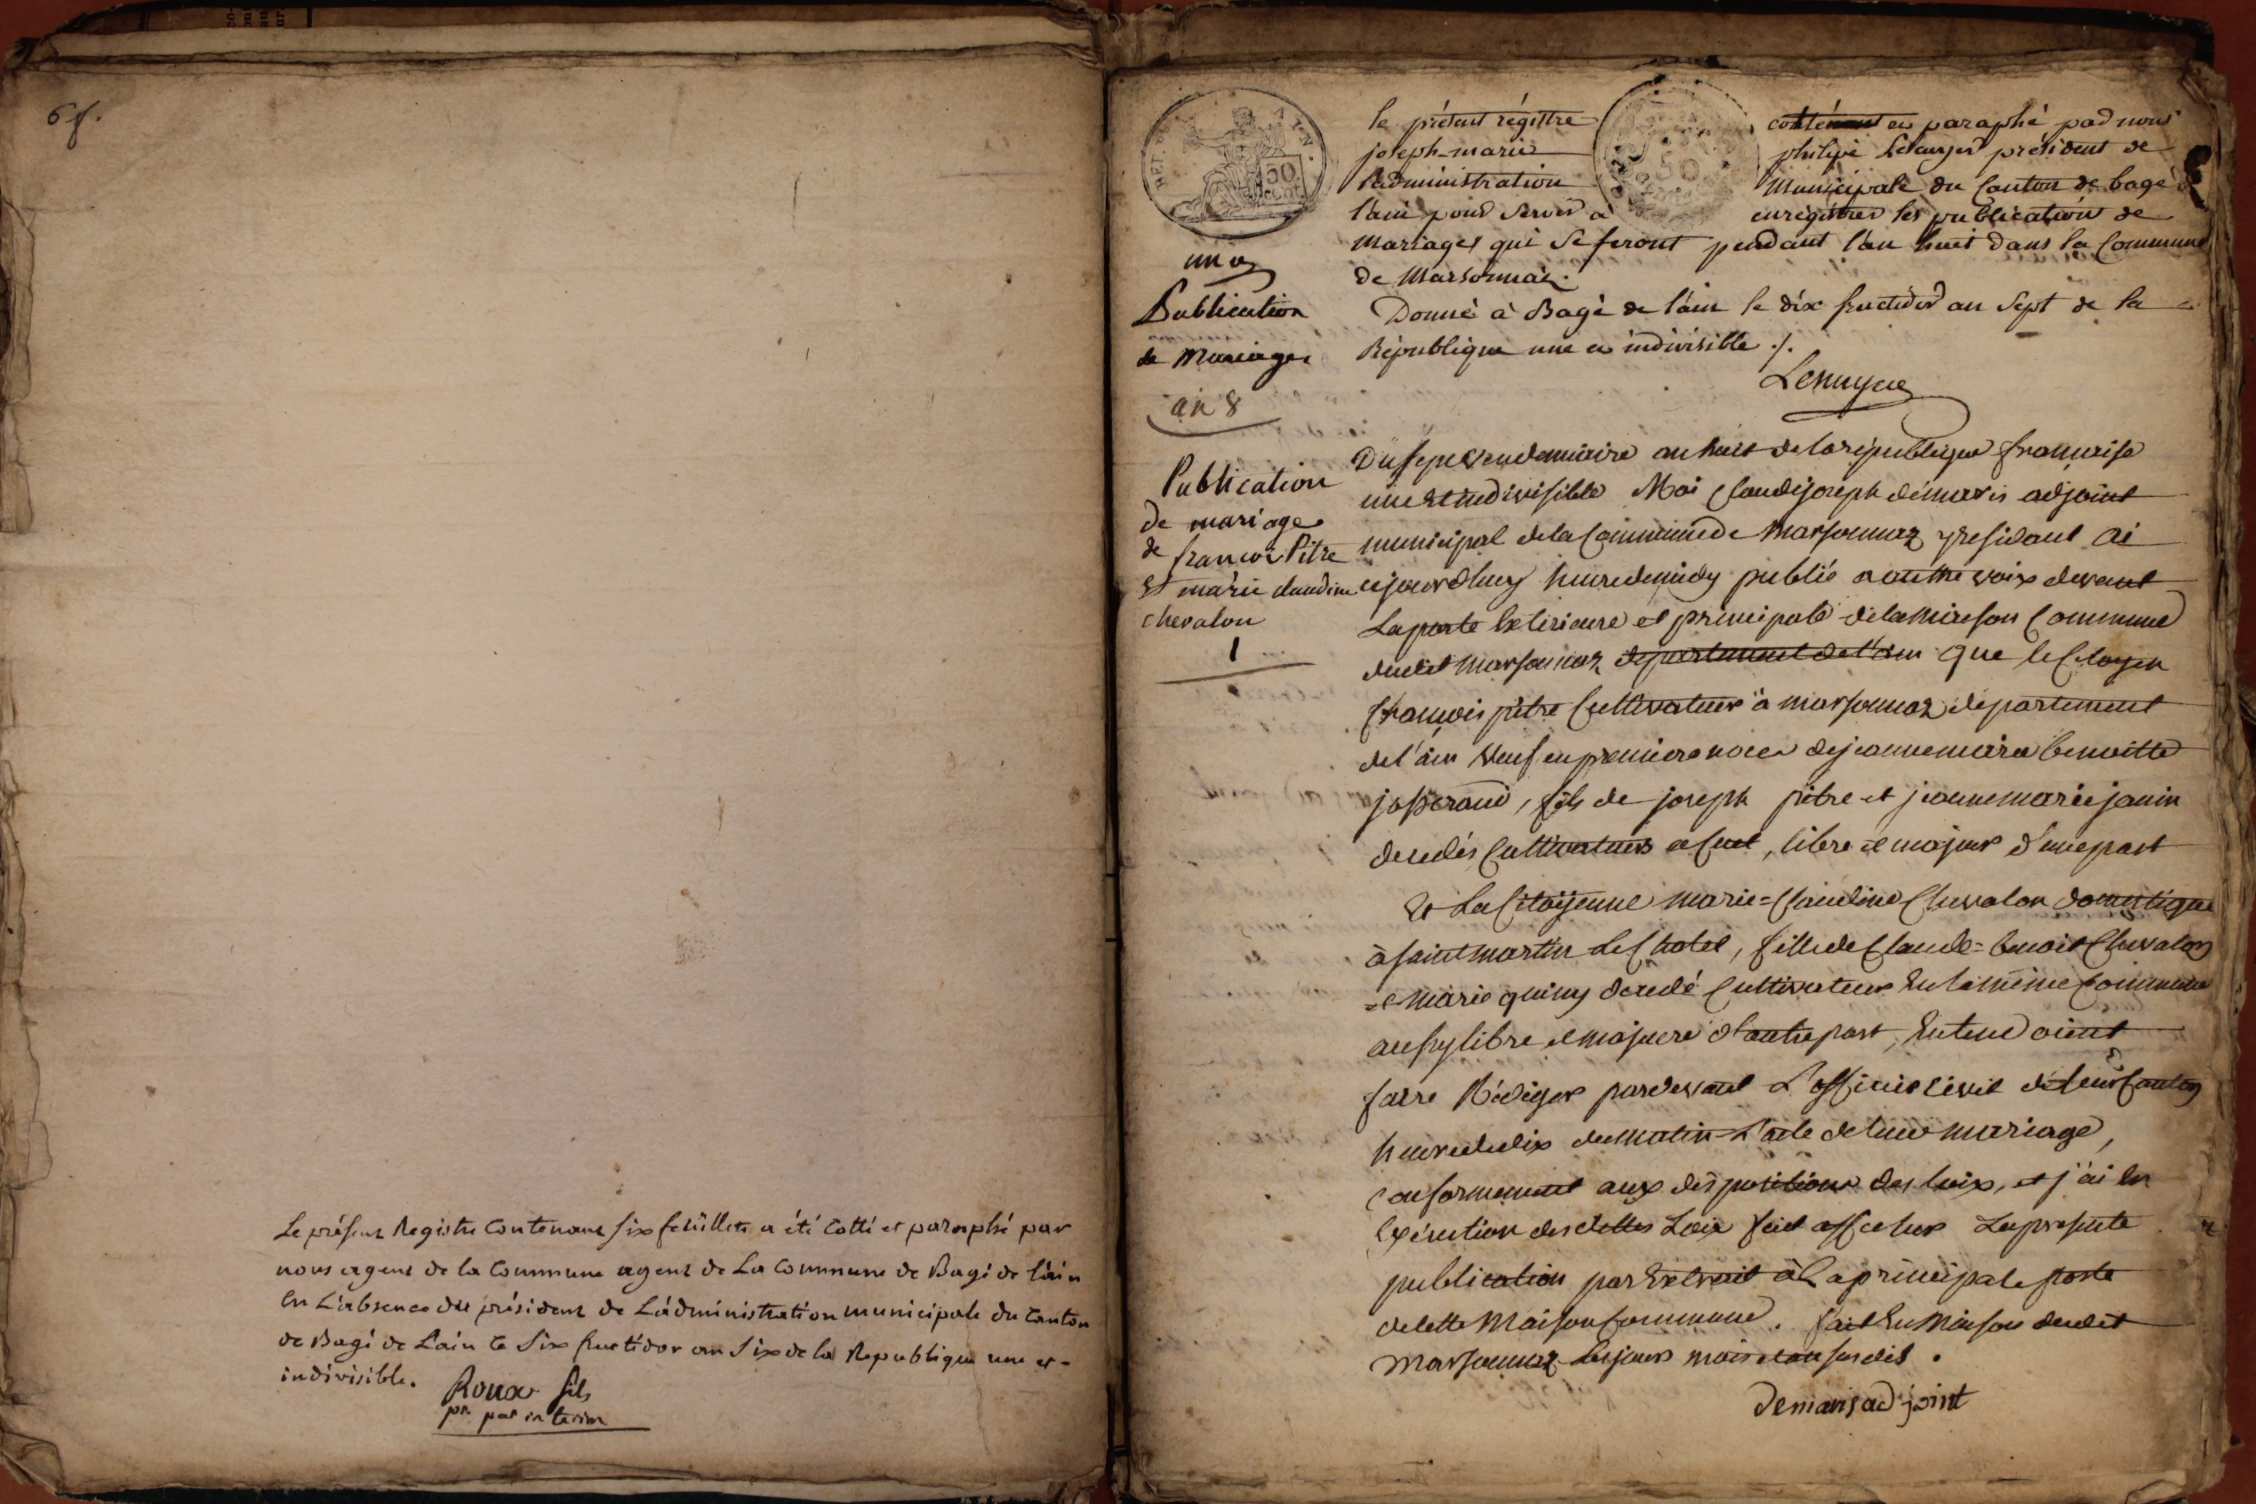 6 f.
Le présent Registre contenant six feüillets a été Cotté et paraphé par
nous agent de la Commune agent de La Commune de Bagé de l'ain
En L'absence du président de L'administration municipale du canton
de Bagé de L'ain le Six fructidor an Six de la Republique une et
indivisible.
Roux fils
pr. par interim
le présent régistre contenant en paraphé par nous
joseph-marie philipe président de
l'administration Municipale du Canton de bagé
l'ain pour servir à enrégistrer les publication de
Mariages qui se feront pendant l'an huit dans la Commune
de Marsonnas.
Donné à Bagé de l'ain le dix fructidor an Sept de la
République une et indivisible ./.
un
Publication
de Mariages
an 8
Publication
de mariage
de françois Pitre
Et marie claudine
chevalon
1
Du sept vendemiaire an huit de la republique française
une et indivisible Moi Claude joseph démaris adjoint
municipal de la Commune de Marsonnaz y residant ai
cejourd'huy heure de midy publié a autte voix devant
La porte Exterieure et principale de la Maison Commune
dudit Marsonnaz departement de l'ain que le Citoyen
françois pitre Cultivateur à marsonnaz departement
de l'ain veuf en premiere noces de jeanne marie benoitte
josserand, fils de joseph pitre et jeanne marie janin
decedés Cultivateurs a Cuet, libre et majeur d'une part
Et La Citoÿenne Marie=Claudine Chevalon domestique
à saint martin Le Chatel, fille de Claude=benoit Chevalon
et Marie decedé Cultivateur En la même Commune
aussy libre et majeure d'autre part, Entendoient
faire Rédiger pardevant L'officier civil de leur Canton
heure de dix du matin L'acte de leur mariage,
conformement aux dispositions des loix, et j'ai En
Exécution desdittes Loix fait afficher La presente
publication par Extrait à La principale porte
de cette Maison Commune. fait En Maison dudit
Marsonnaz Les jours mois et an susdit.
demaris adjoint